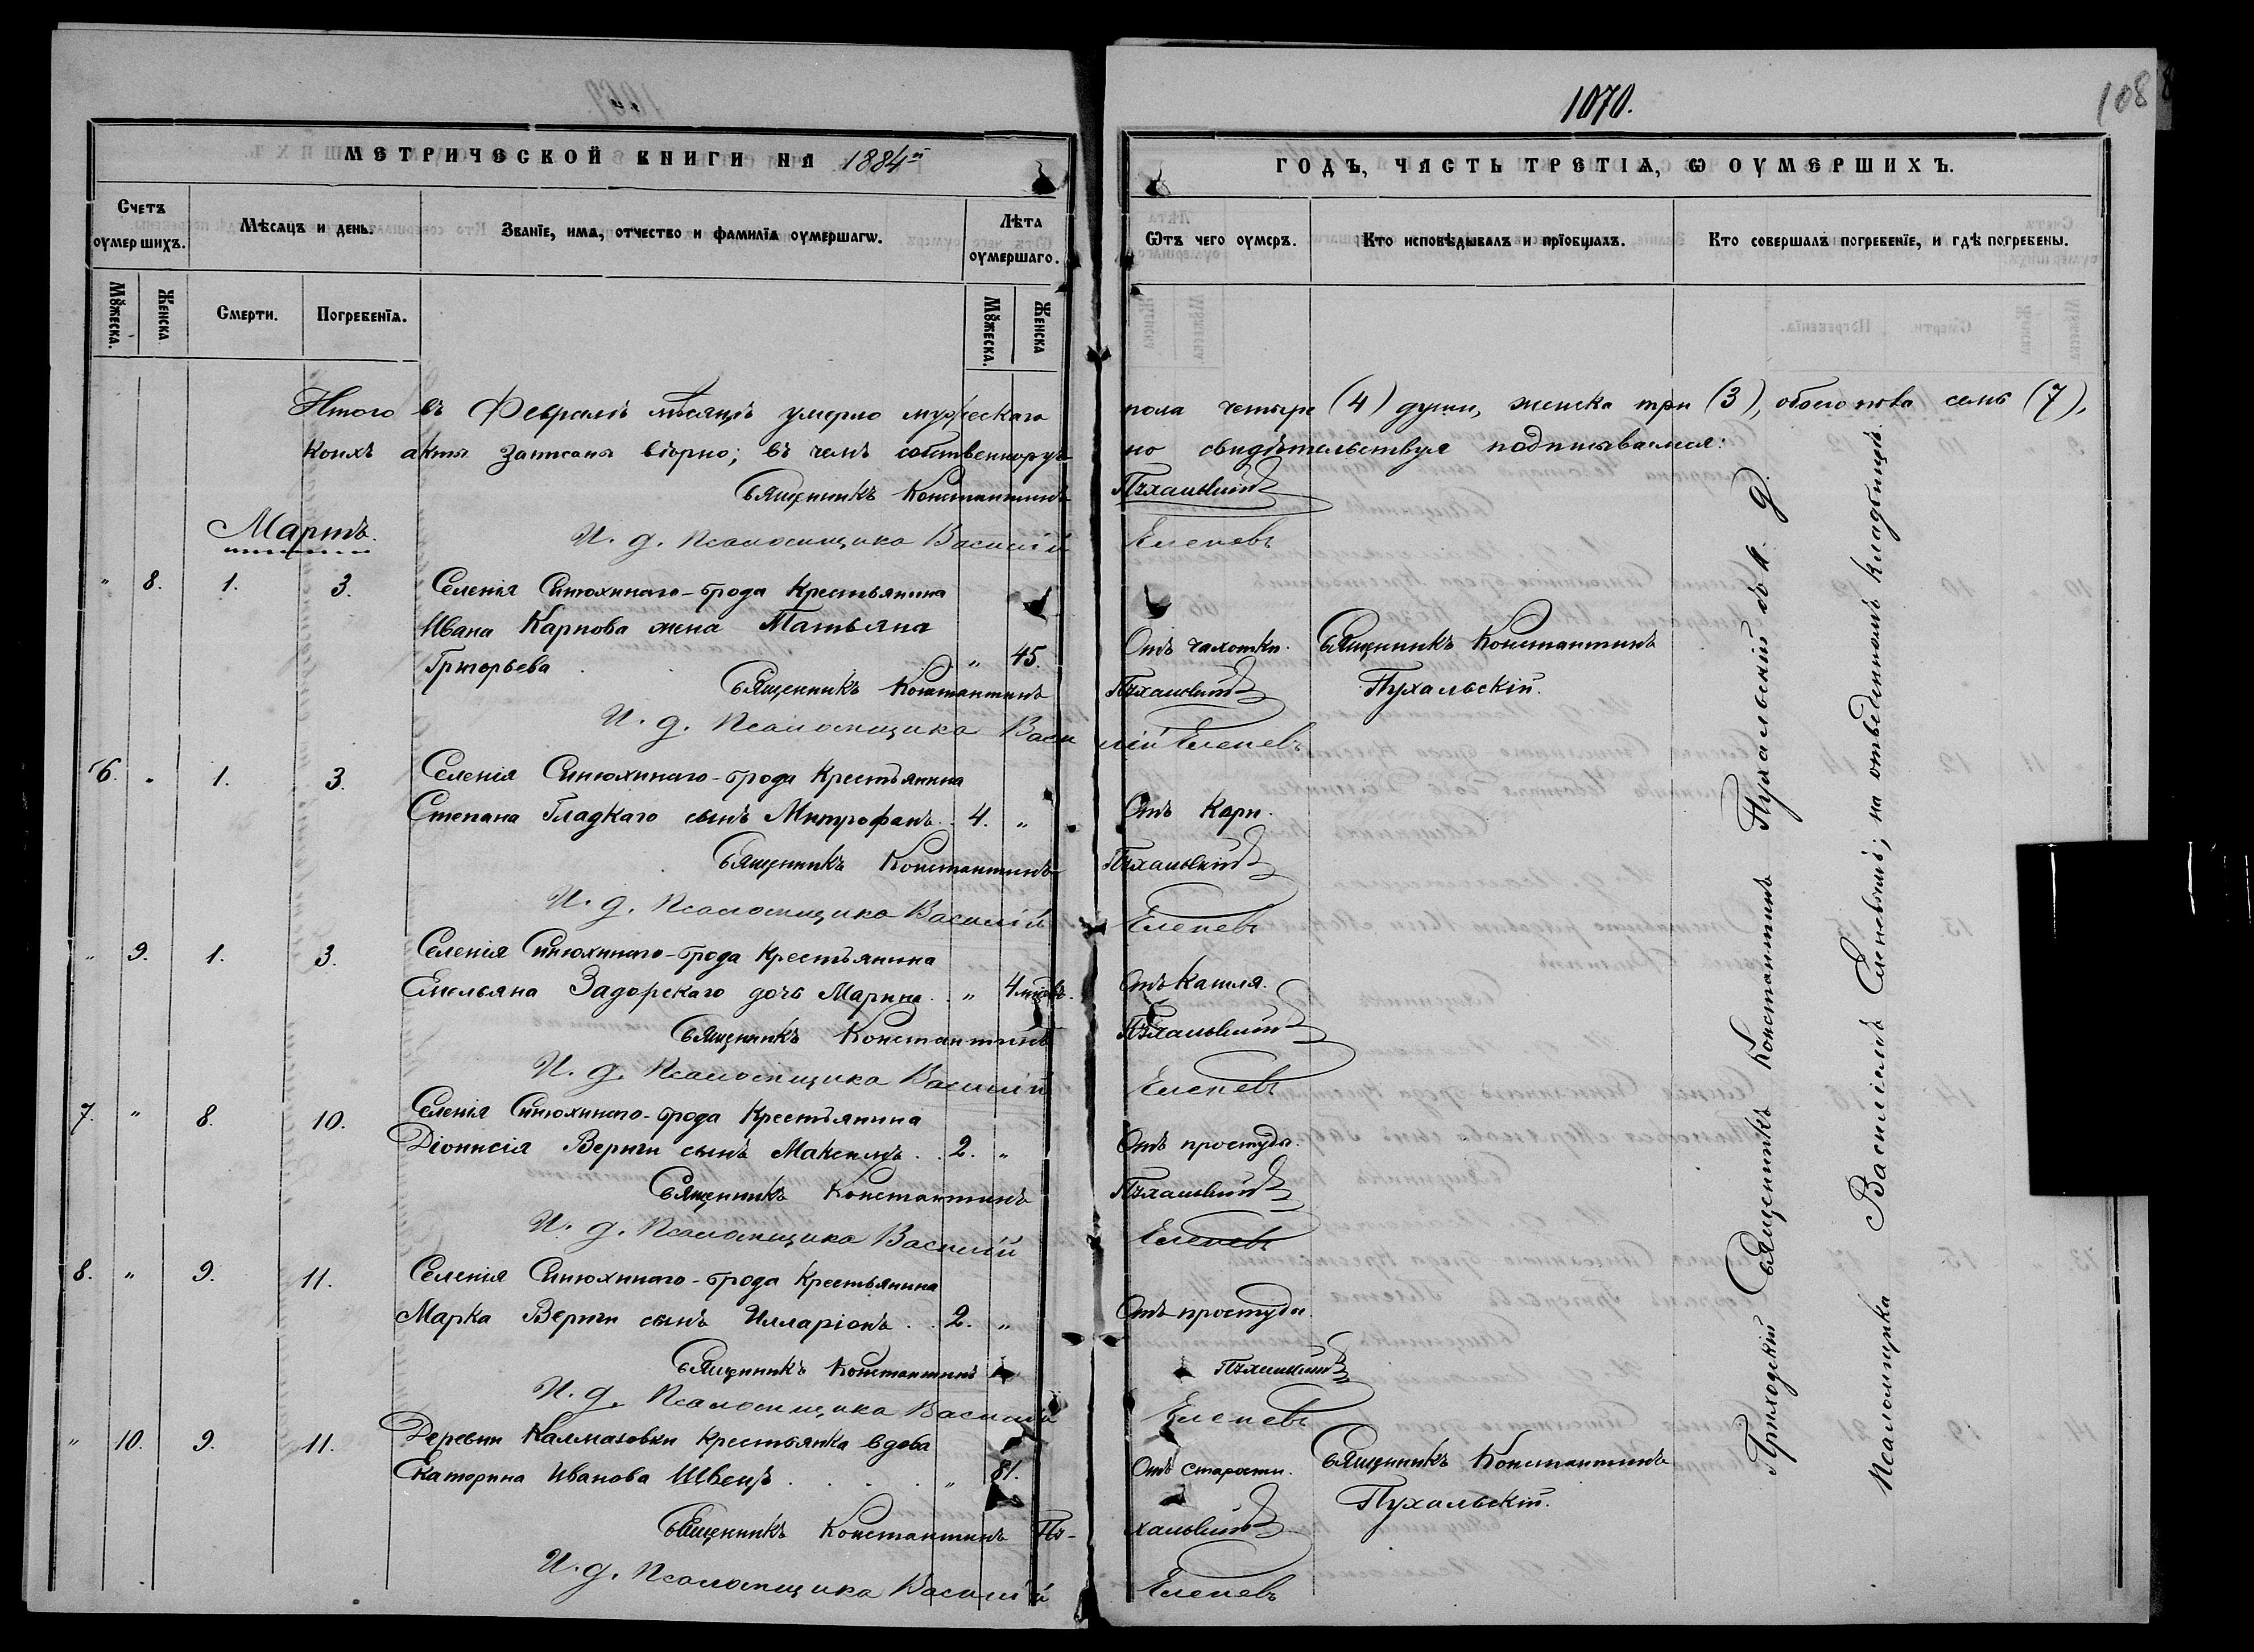 1070.
108
МЕТРИЧЕСКОЙ КНИГИ НА 1884й
ГОДЪ, ЧАСТЬ ТРЕТІѦ, Ѡ ОУМЕРШИХЪ.
Счетъ оумершихъ.
Мѣсяцъ и день.
Званїе, имѧ, отчество и фамилїѧ оумершагѡ.
Лѣта оумершаго.
Ѿтъ чего оумеръ.
Кто исповѣдывалъ и прїобщалъ.
Кто совершалъ погребенїе, и гдѣ погребены.
Мꙋжеска.
Женска
Смерти.
Погребенїѧ.
Мꙋжеска.
Женска
Итого въ Февралѣ мѣсяцѣ умерло мужескаго пола четыре (4) души, женска три (3), обоего пола семь (7),
коихъ акты записаны вѣрно; въ чемъ собственноручно свидѣтельствуя подписываемся:
Священникъ Константинъ Пухальскій
И. д. Псаломщика Василій Еленевъ
Мартъ.
" 8. 1. 3. Селенія Синюхиного-брода Крестьянина
Ивана Карпова жена Татьяна
Григорьева . " 45. Отъ чахотки. Священникъ Константинъ
Пухальскій.
Священникъ Константинъ Пухальскій
И. д. Псаломщика Василій Еленевъ
6. " 1. 3. Селенія Синюхиного-брода Крестьянина
Степана Гладкаго сынъ Митрофанъ . 4. " Отъ Кори.
Священникъ Константинъ Пухальскій
И. д. Псаломщика Василій Еленевъ
" 9. 1. 3. Селенія Синюхиного-брода Крестьянина
Емельяна Задорскаго дочь Марина . " 4 мцѣвъ. Отъ Кашля.
Священникъ Константинъ Пухальскій
И. д. Псаломщика Василій Еленевъ
7. " 8. 10. Селенія Синюхиного-брода Крестьянина
Діонисія Вериги сынъ Максимъ . . 2. " Отъ простуды.
Священникъ Константинъ Пухальскій
И. д. Псаломщика Василій Еленевъ
8. " 9. 11. Селенія Синюхиного-брода Крестьянина
Марка Вериги сынъ Илларіонъ . . 2. " Отъ простуды.
Священникъ Константинъ Пухальскій
И. д. Псаломщика Василій Еленевъ
" 10. 9. 11. Деревни Калмазовки Крестьянка вдова
Екатерина Иванова Швецъ . . . . " 81. Отъ старости. Священникъ Константинъ
Пухальскій.
Священникъ Константинъ Пухальскій
И. д. Псаломщика Василій Еленевъ
Приходскій Священникъ Константинъ Пухальскій съ и. д.
Псаломщика Василіемъ Еленевымъ; на отведенномъ кладбищѣ.